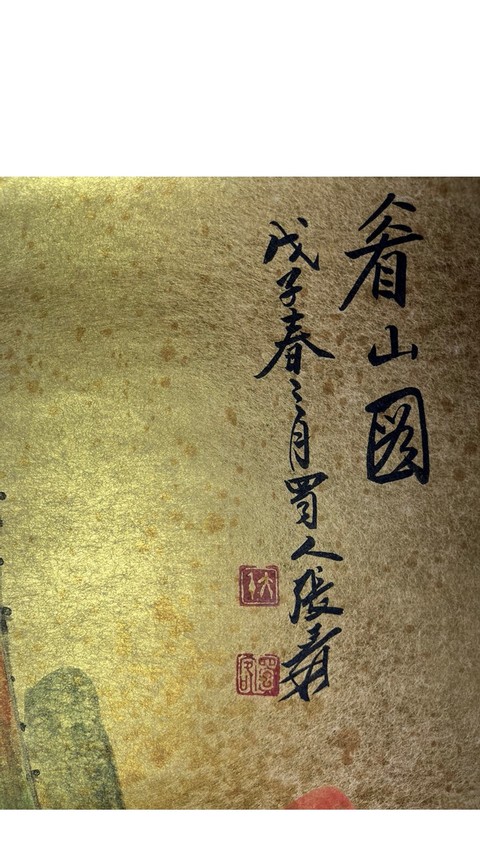 看山圖
戊子春月蜀人張爰